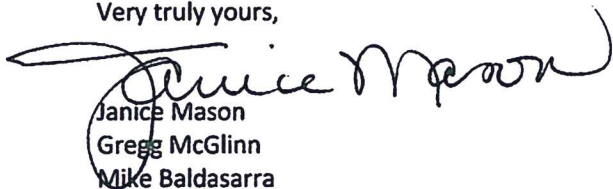 Very truly yours,
Janice Mason
Janice Mason
Gregg McGlinn
Mike Baldasarra